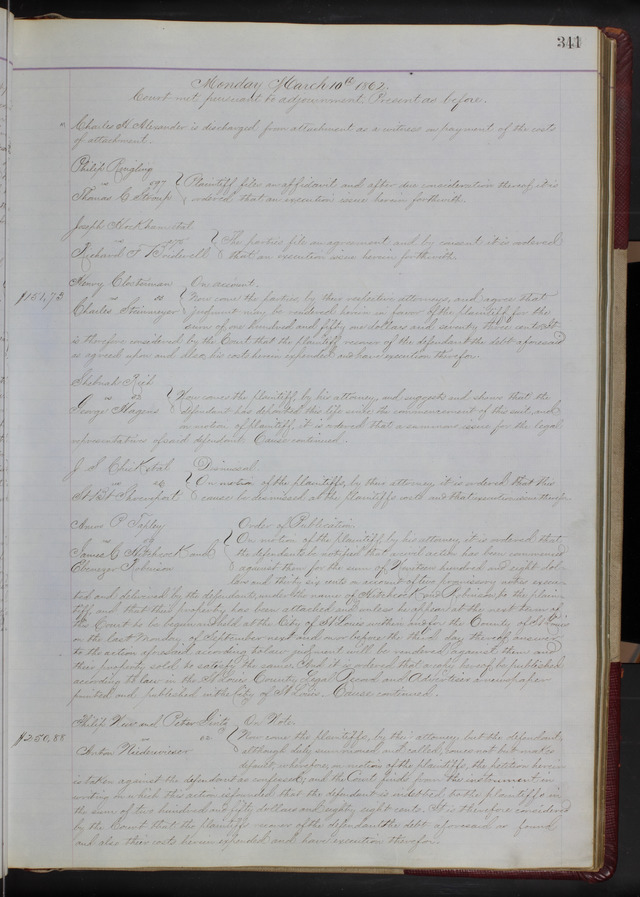 341
Monday March 10th 1862.
Court met pursuant to adjournment. Present as before.
Charles H. Alexander is discharged from attachment as a witness on payment of the costs
of attachment.
Philip Ringling
vs
Thomas C. Stroup Plaintiff files an affidavit and after due consideration thereof it is
ordered that an execution issue herein forthwith.
Joseph et al
vs
Richard F. Bridewell The parties file an agreement and by consent it is ordered
that an execution issue herein forthwith.
Henry Closterman On account.
$151,73
vs
Charles Steinmeyer Now come the parties by their respective attorneys, and agree that
judgment may be rendered herein in favor of the plaintiff for the
sum of one hundred and fifty one dollars and seventy three cents. It
is therefore considered by the Court that the plaintiff recover of the defendant the debt aforesaid
as agreed upon and also his costs herein expended and have execution therefor.
Rich
vs
George Hagens Now comes the plaintiff, by his attorney, and suggests and shows that the
defendant has departed this life since the commencement of this suit and
on motion of plaintiff, it is ordered that a summons issue for the legal
representatives of said defendant. Cause continued.
J. S. Chick et al Dismissal.
vs
St. Bt. Shreveport On motion of the plaintiffs, by their attorney it is ordered that this
cause be dismissed at the plaintiffs costs and that execution issue therefor.
Amos P. Tapley Order of Publication.
vs
James C. Hitchcock and
Ebenezer Robinson On motion of the plaintiff, by his attorney it is ordered, that
the defendants be notified that a civil action has been commenced
against them for the sum of Nineteen hundred and eight dol-
lars and thirty six cents on account of two promissory notes execu-
ted and delivered by the defendants, under the name of Hitchcock and Robinson to the plain-
tiff, and that their property has been attached and unless he appear at the next term of
the Court to be begun and held at the City of St Louis within and for the County of St Louis
on the last Monday of September next and on or before the third day thereof answer
to the action aforesaid according to law judgment will be rendered against them and
their property sold to satisfy the same. And it is ordered that a copy hereof be published
according to law in the St Louis County Legal Record and Advertiser a newspaper
printed and published in the City of St Louis. Cause continued.
Philip and Peter On Note.
$250,88
vs
Anton Niederwieser Now come the plaintiffs, by their attorney, but the defendant
although duly summoned and called, comes not but makes
default, wherefore, on motion of the plaintiffs, the petition herein
is taken against the defendant as confessed; and the Court finds from the instrument in
writing on which this action is founded that the defendant is indebted to the plaintiffs in
the sum of two hundred and fifty dollars and eighty eight cents. It is therefore considered
by the Court that the plaintiffs recover of the defendant the debt aforesaid as found
and also their costs herein expended and have execution therefor.